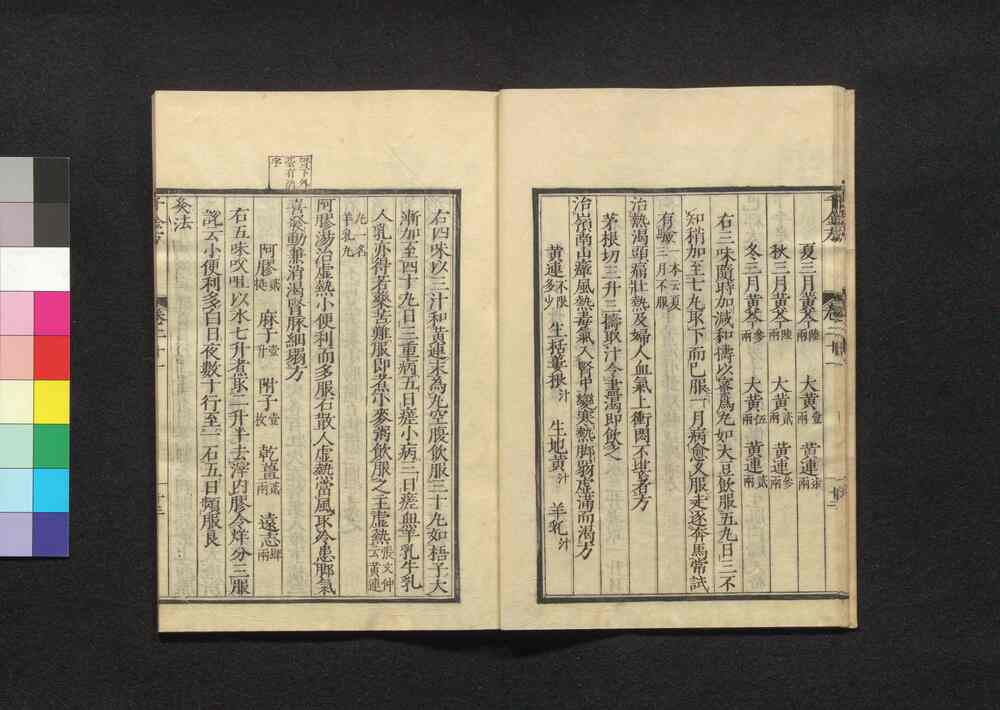 夏三月黄芩陸兩 大黄壹兩 黄連
秋三月黄芩陸兩 大黄貳兩 黄連參兩
冬三月黄芩參兩 大黄伍兩 黄連貳兩
右三味隨時加減和擣以蜜爲丸如大豆飲服五丸日三不
知稍加至七丸取下而已服一月病愈久服走逐奔馬常試
有驗一本云夏三月不服
治熱渴頭痛壯熱及婦人血氣上衝悶不堪者方
茅根切三升三擣取汁令盡渴即飲之
治嶺南山瘴風熱毒氣入腎中變寒熱脚弱虚滿而渴方
黄連不限多少 生括蔞根汁 生地黄汁 羊乳汁
右四味以三汁和黄連末為丸空腹飲服三十丸如梧子大
漸加至四十丸日三重病五日瘥小病三日瘥無羊乳牛乳
人乳亦得若藥苦難服即煮小麥粥飲服之主虚熱張文仲云黄連
丸一名羊乳丸
阿膠湯治虚熱小便利而多服石散人虚熱當風取冷患脚氣
喜發動兼消渴腎脉細弱方
阿膠貳挺 麻子壹升 附子壹枚 乾薑貳兩 遠志肆兩
右五味㕮咀以水七升煮取二升半去滓内膠令烊分三服
說云小便利多白日夜數十行至一石五日頻服良
灸法
卷二十一